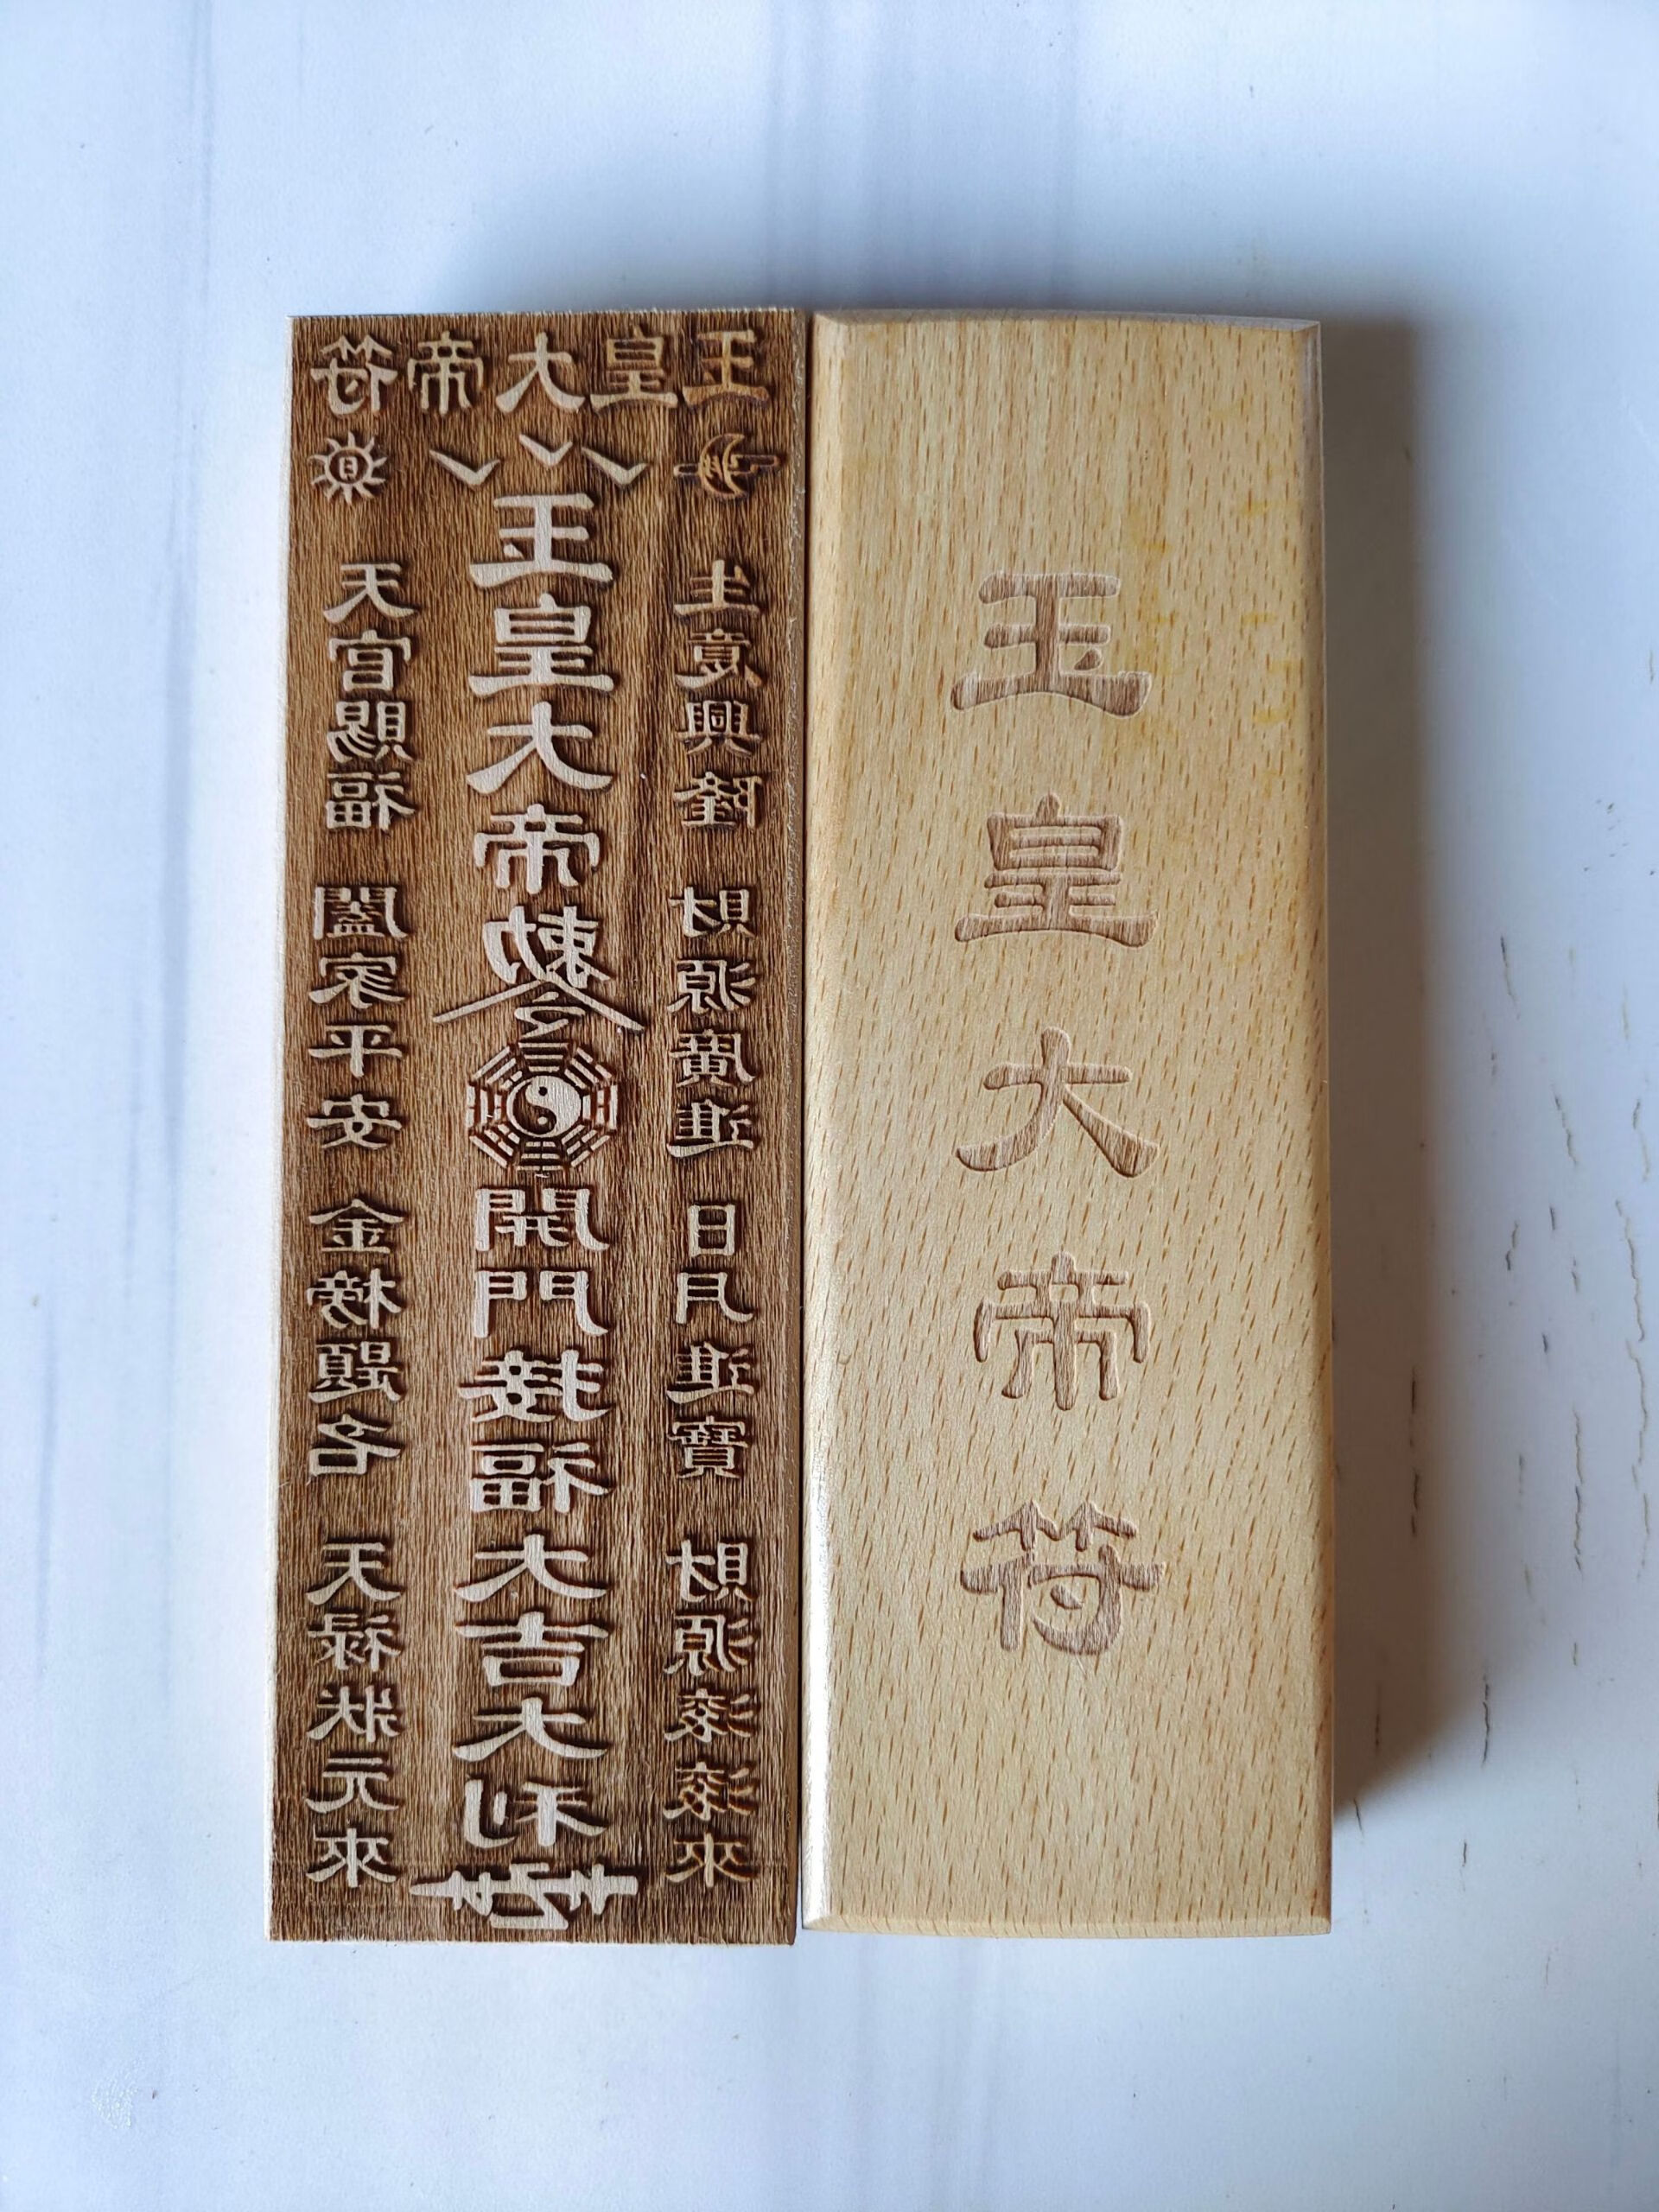 玉皇大帝符
月
日
生意興隆 財源廣進 日月進寶 財源滚滚來
玉皇大帝勅令
開門接福大吉大利
天官賜福 闔家平安 金榜題名 天禄狀元來
玉皇大帝符